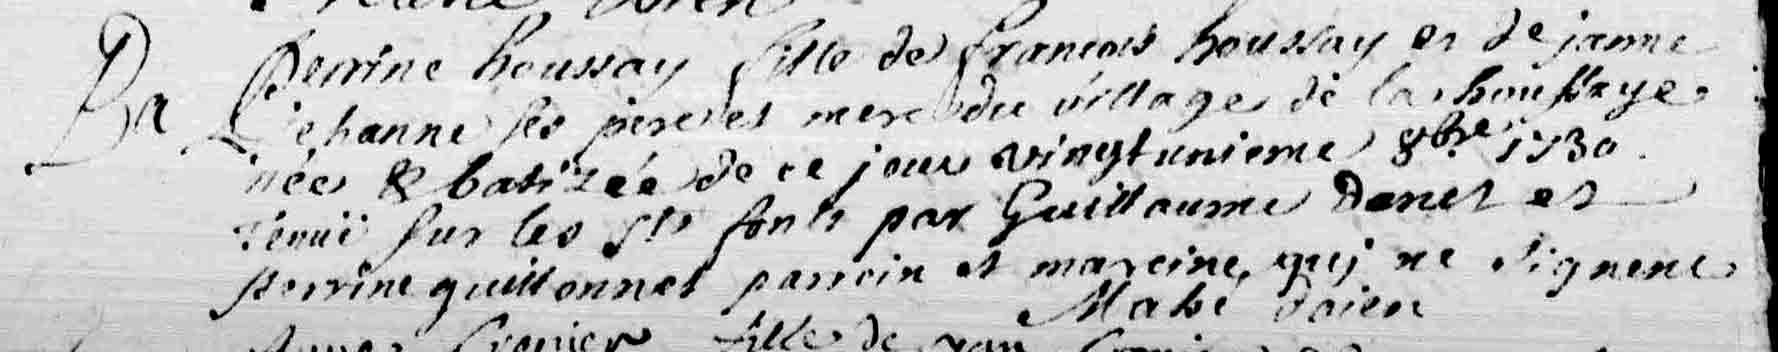 Ba Perrine houssay fille de francois houssay et de janne
Jehanne ses pere et mere du village de la houssaye
née & batizée de ce jour vingt unieme 8bre 1730.
tenuë sur les sts fonts par Guillaume Danet et
perrine guillonnet parrein et mareine, quj ne signent
Mahé doien
fille de